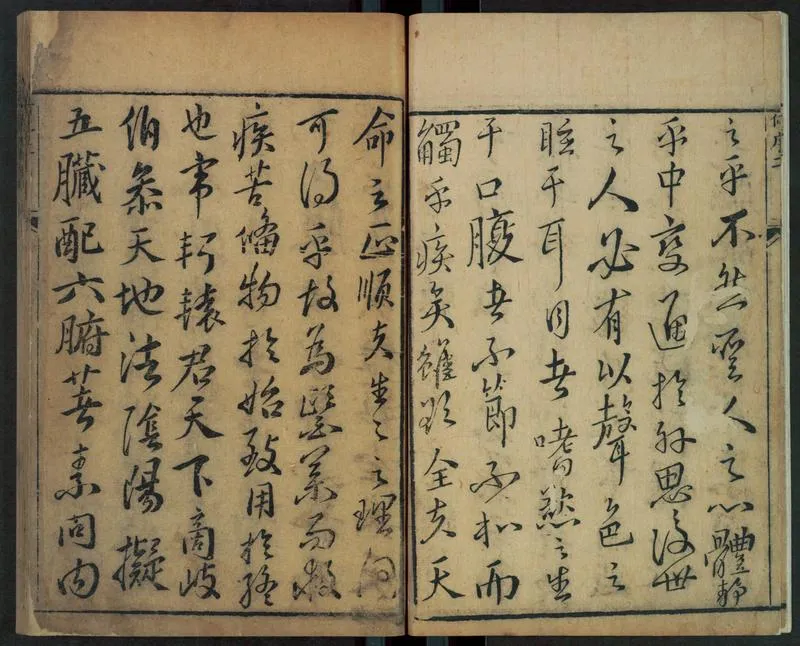 之乎不然聖人之心體靜
乎中变通於外思後世
之人必有以聲色之
眩于耳目者嗜慾之生
于口腹者不節不和而
觸乎疾矣雖欲全夫天
命之正順夫生〻之理何
可得乎故為醫藥而救
疾苦俻物於始致用於終
也軒轅君天下商岐
伯叅天地法陰陽擬
五臟配六腑著素問内